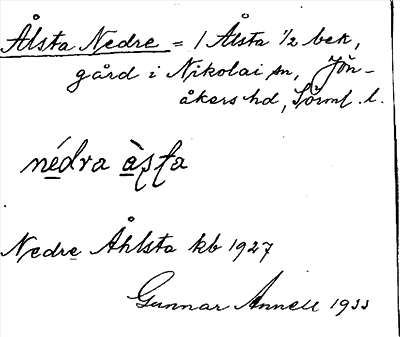 Ålsta Nedre = / Ålsta 1/2 bek,
gård i Nikolai sn, Jön-
åkers hd, Sörml. l.
nédra àsta
Nedre Åhlsta kb 1927
Gunnar Annell 1933